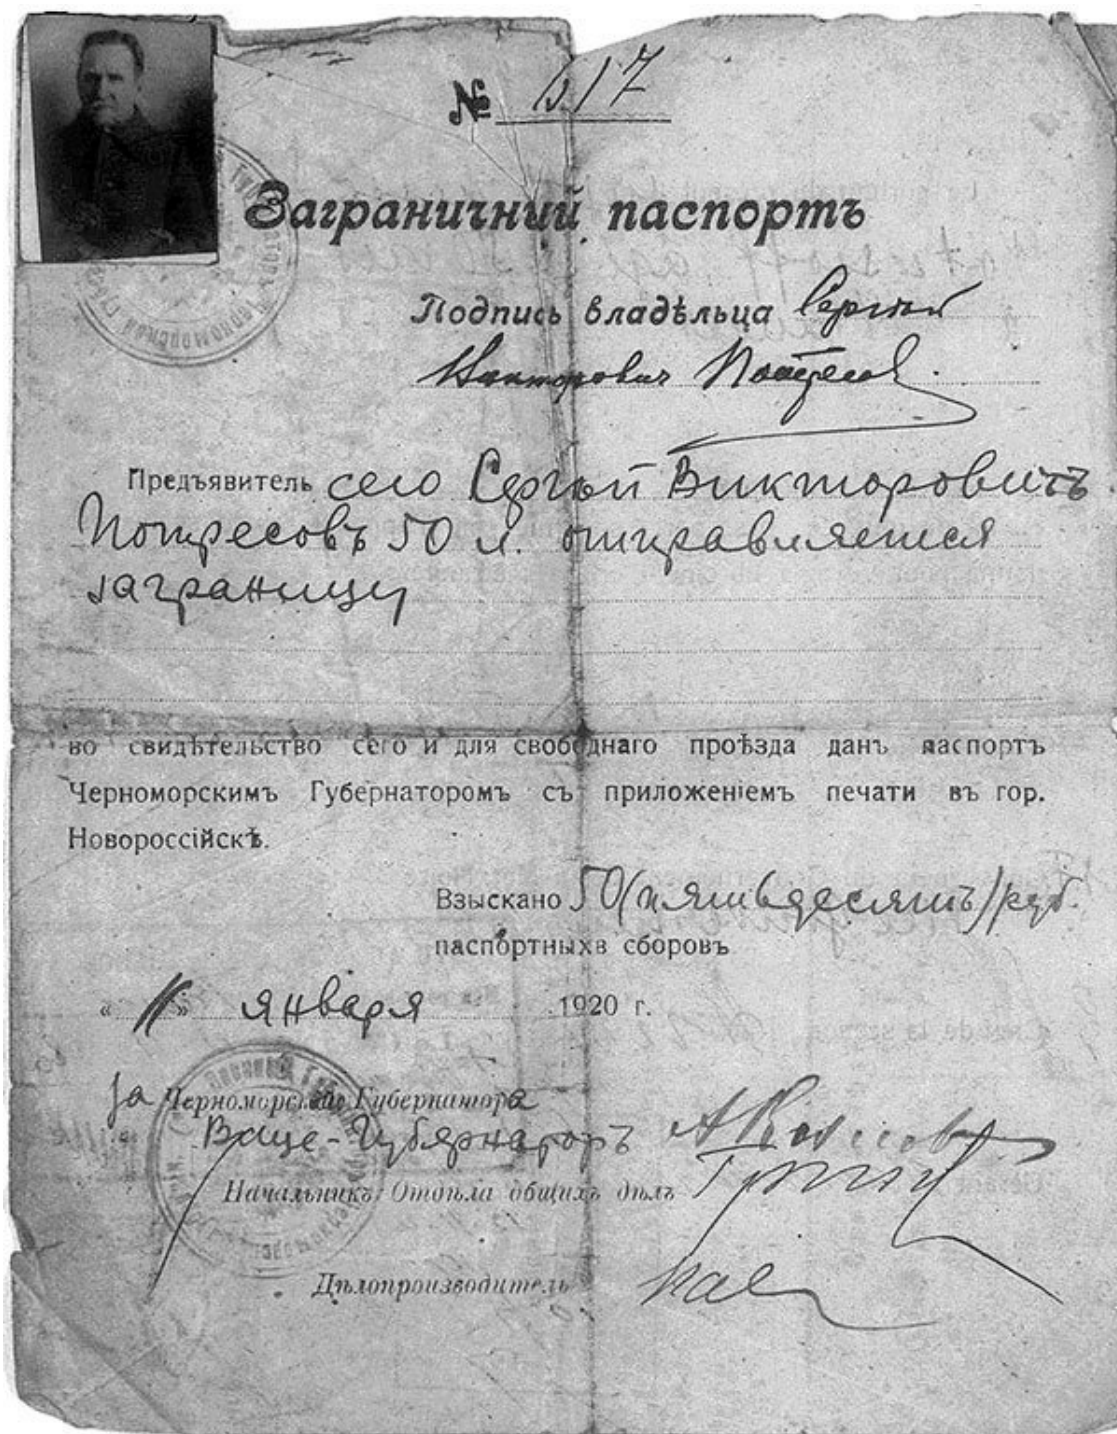 № 617
Заграничний паспортъ
Подпись владѣльца Сергѣй
Викторовичъ Потресов
Предъявитель сего Сергѣй Викторовичъ
Потресовъ 50 л. отправляется
заграницу
во свидѣтельство сего и для свободнаго проѣзда данъ паспортъ
Черноморскимъ Губернаторомъ съ приложеніемъ печати въ гор.
Новороссійскѣ.
Взыскано 50 (пятьдесятъ) руб.
паспортныхъ сборовъ
„11" января 1920 г.
За Черноморскаго Губернатора
Вице-Губернаторъ
Начальникъ Отдѣла общихъ дѣлъ
Дѣлопроизводитель